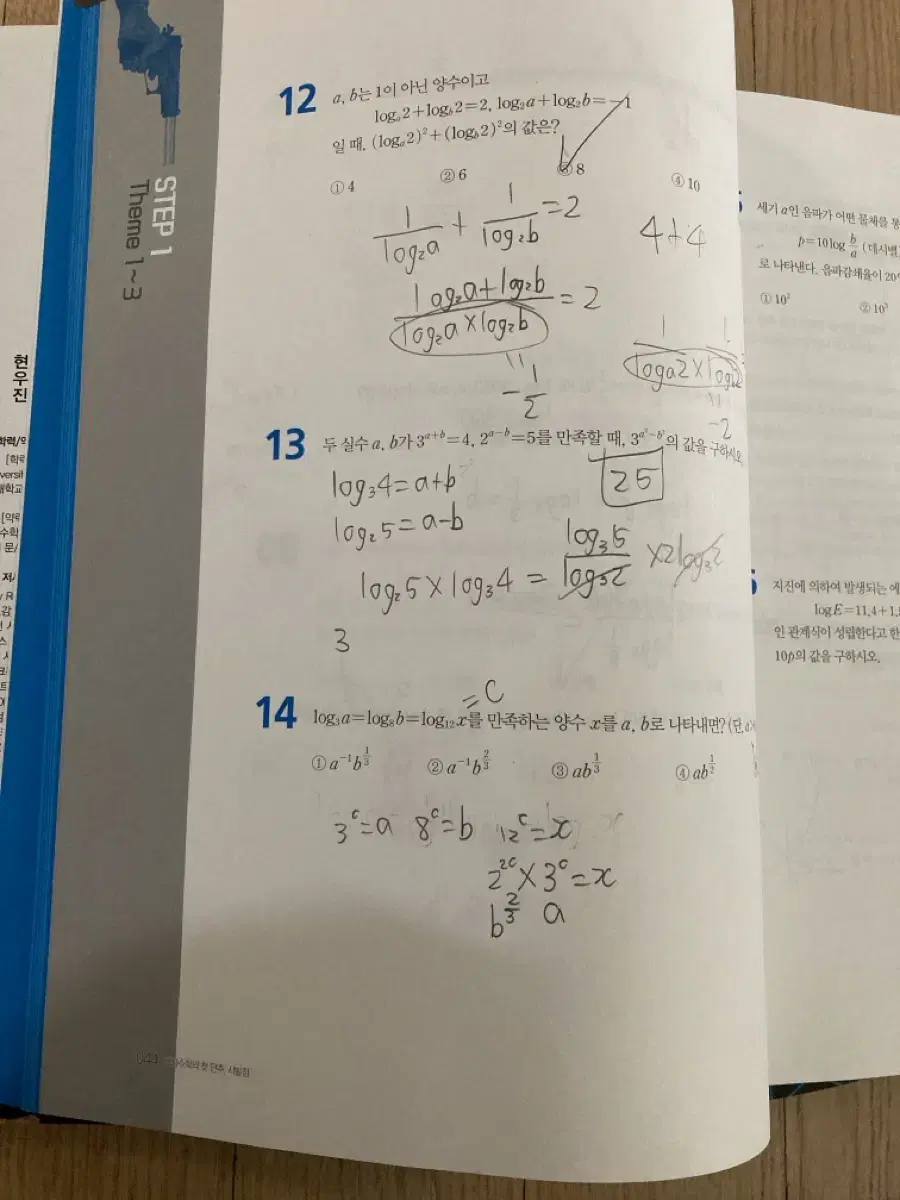 STEP 1
Theme 1~3
현우진
12 a, b는 1이 아닌 양수이고
logₐ2+log_b2=2, log₂a+log₂b=-1
일 때, (logₐ2)²+(log_b2)²의 값은?
① 4 ② 6 ③ 8 ④ 10
1/log₂a + 1/log₂b = 2
4+4
(log₂a+log₂b)/(log₂a×log₂b) = 2
-1/2
1 1
loga2×logb2
-2
13 두 실수 a, b가 3^(a+b)=4, 2^(a-b)=5를 만족할 때, 3^(a²-b²)의 값을 구하시오.
25
log₃4=a+b
log₂5=a-b
log₂5×log₃4 = log₃5/log₃2 ×2log₃2
3
=C
14 log₃a=log₈b=log₁₂x를 만족하는 양수 x를 a, b로 나타내면? (단,
① a⁻¹b^(1/3) ② a⁻¹b^(2/3) ③ ab^(1/3) ④ ab^(1/2)
3^c=a 8^c=b 12^c=x
2^(2c)×3^c=x
b^(2/3) a
044
첫 단추, 시발점
세기 a인 음파가 어떤 물체를 통
p=10log b/a (데시벨)
로 나타낸다. 음파감쇄율이 20
① 10² ② 10³
지진에 의하여 발생되는 에
logE=11.4+1.
인 관계식이 성립한다고 한
10p의 값을 구하시오.